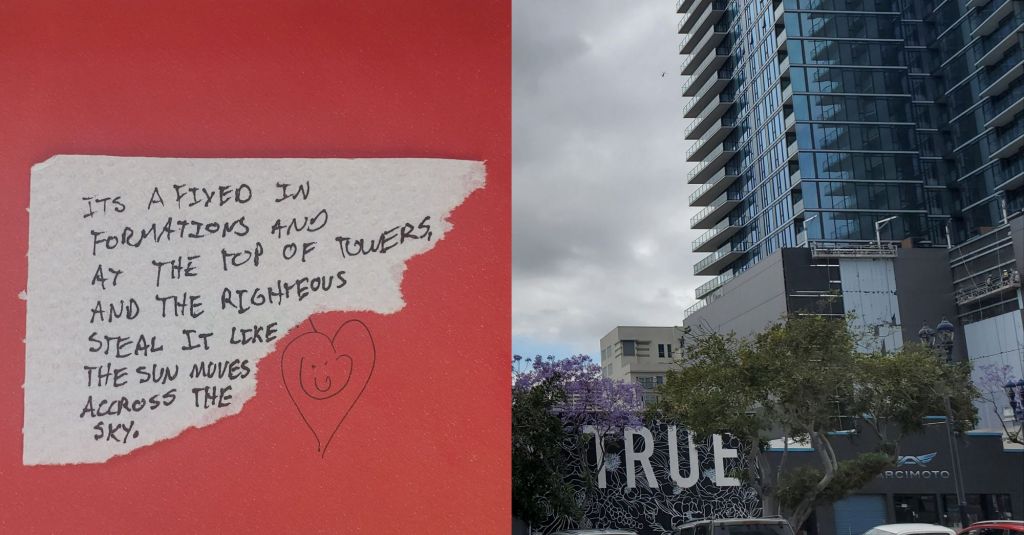 ITS A FIXED IN
FORMATIONS AND
AT THE TOP OF TOWERS,
AND THE RIGHTEOUS
STEAL IT LIKE
THE SUN MOVES
ACCROSS THE
SKY.
TRUE
ARCIMOTO